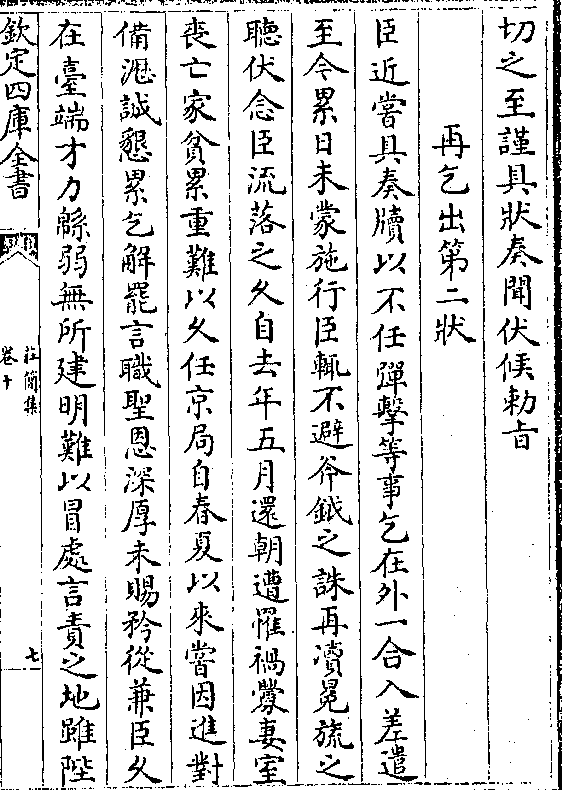 切之至謹具狀奏聞伏候勅旨
再乞出第二狀
臣近嘗具奏牘以不任彈擊等事乞在外一合入差遣
至今累日未蒙施行臣輒不避斧鉞之誅再瀆冕旒之
聽伏念臣流落之久自去年五月還朝遭罹禍釁妻室
喪亡家貧累重難以久任京局自春夏以來嘗因進對
備瀝誠懇累乞解罷言職聖恩深厚未賜矜從兼臣久
在臺端才力緜弱無所建明難以冒處言責之地雖陛
欽定四庫全書
莊簡集
卷十
七